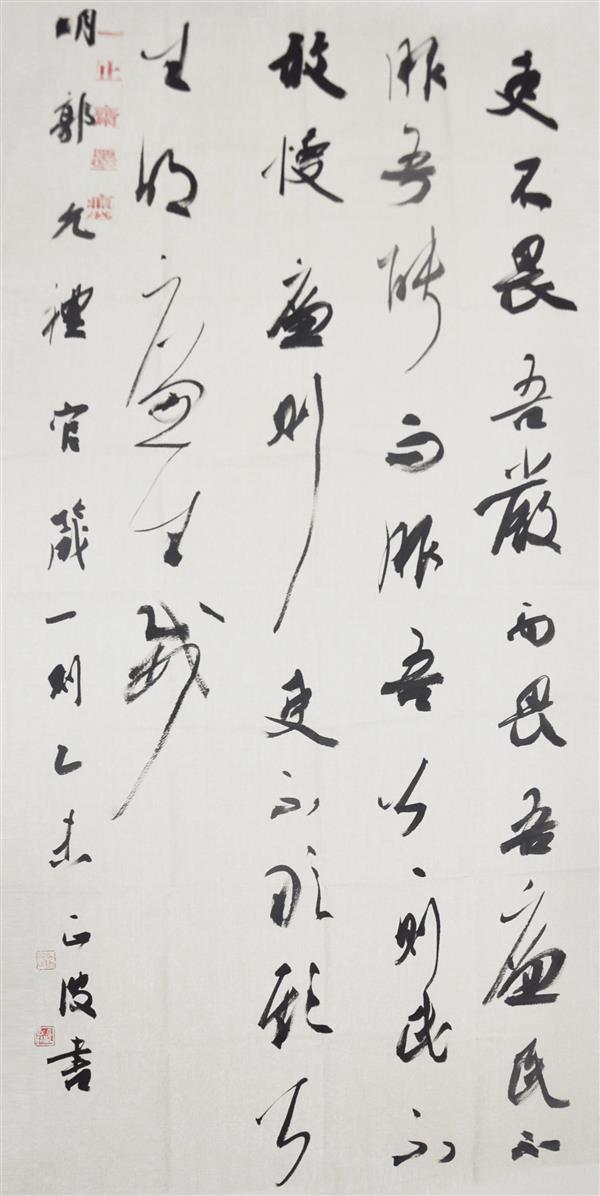 吏不畏吾嚴而畏吾廉民不
服吾能而服吾公、則民不
敢慢廉則吏不敢欺公
生明廉生威
明郭允禮官箴一則乙未正波書
一止齋墨痕